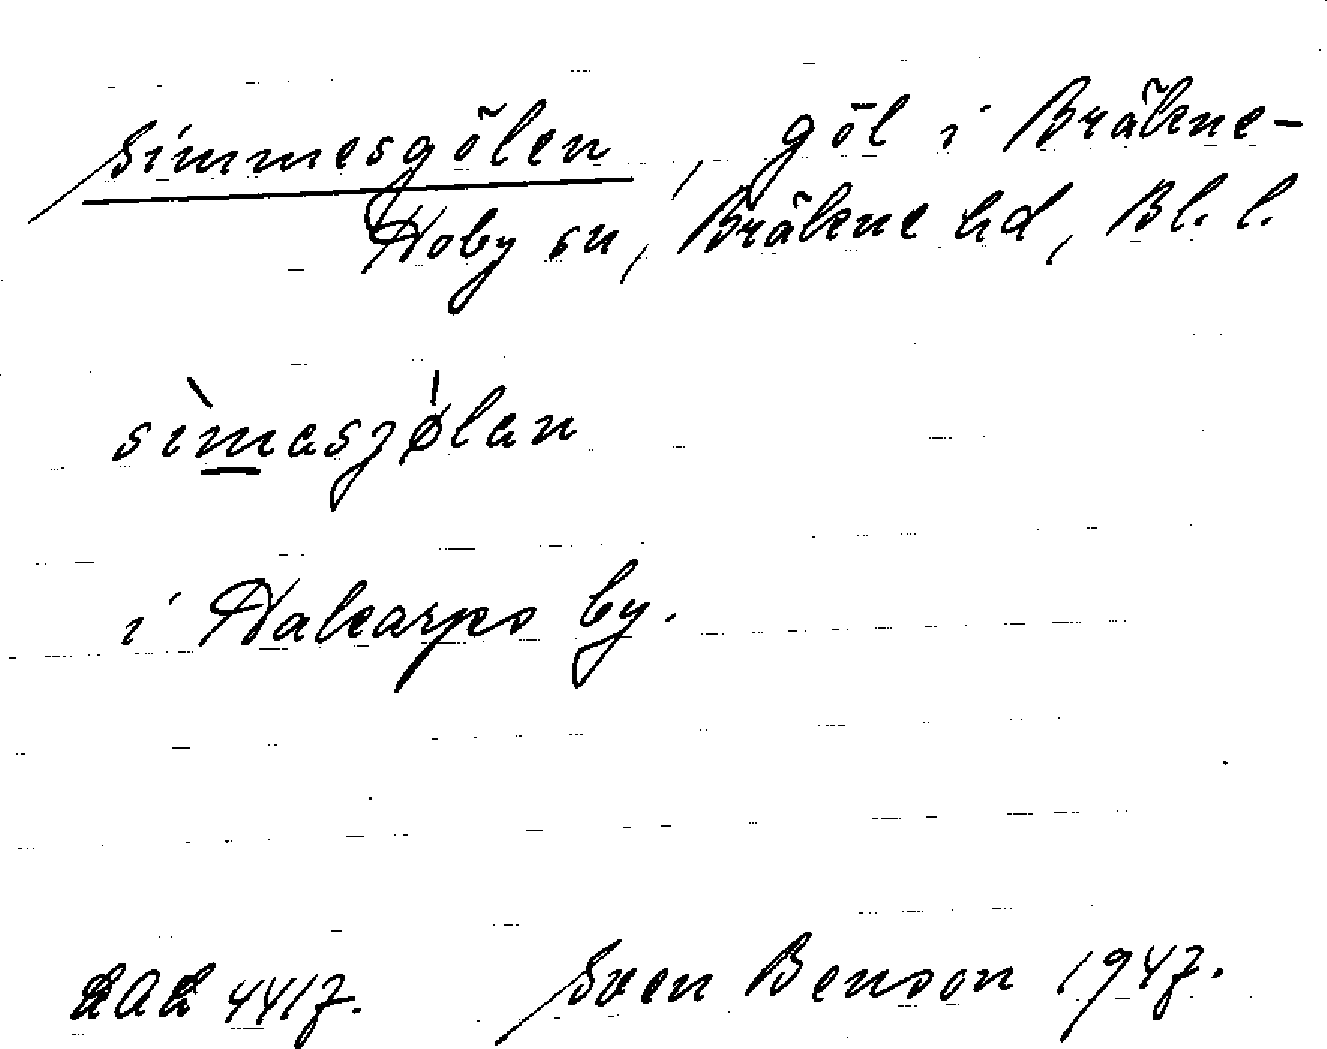 Simmesgölen, göl i Bräkne-
Hoby sn, Bräkne hd, Bl. l.
sìmasjølan
i Halcarps by.
LAL 4417. Sven Benson 1947.